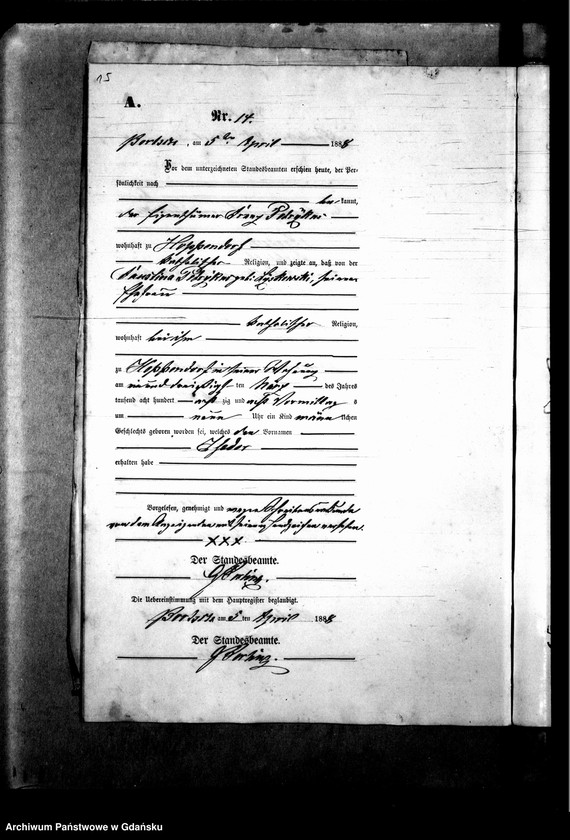 15
A.
Nr. 14.
am 5ten April 1888
Vor dem unterzeichneten Standesbeamten erschien heute, der Per-
sönlichkeit nach
be kannt,
der Eigenthümer Franz
wohnhaft zu Hoppendorf
katholischer Religion, und zeigte an, daß von der
geb. seiner
Ehefrau
katholischer Religion,
wohnhaft bei ihm
zu Hoppendorf in seiner Wohnung
am ein und dreißigsten März des Jahres
tausend acht hundert acht zig und acht Vormittag s
um neun Uhr ein Kind männ lichen
Geschlechts geboren worden sei, welches den Vornamen
erhalten habe
Vorgelesen, genehmigt und wegen Schreibensunkunde
von dem Anzeigenden mit seinem Handzeichen versehen.
XXX
Der Standesbeamte.
Die Uebereinstimmung mit dem Hauptregister beglaubigt.
am 5 ten April 1888
Der Standesbeamte.
Archiwum Państwowe w Gdańsku